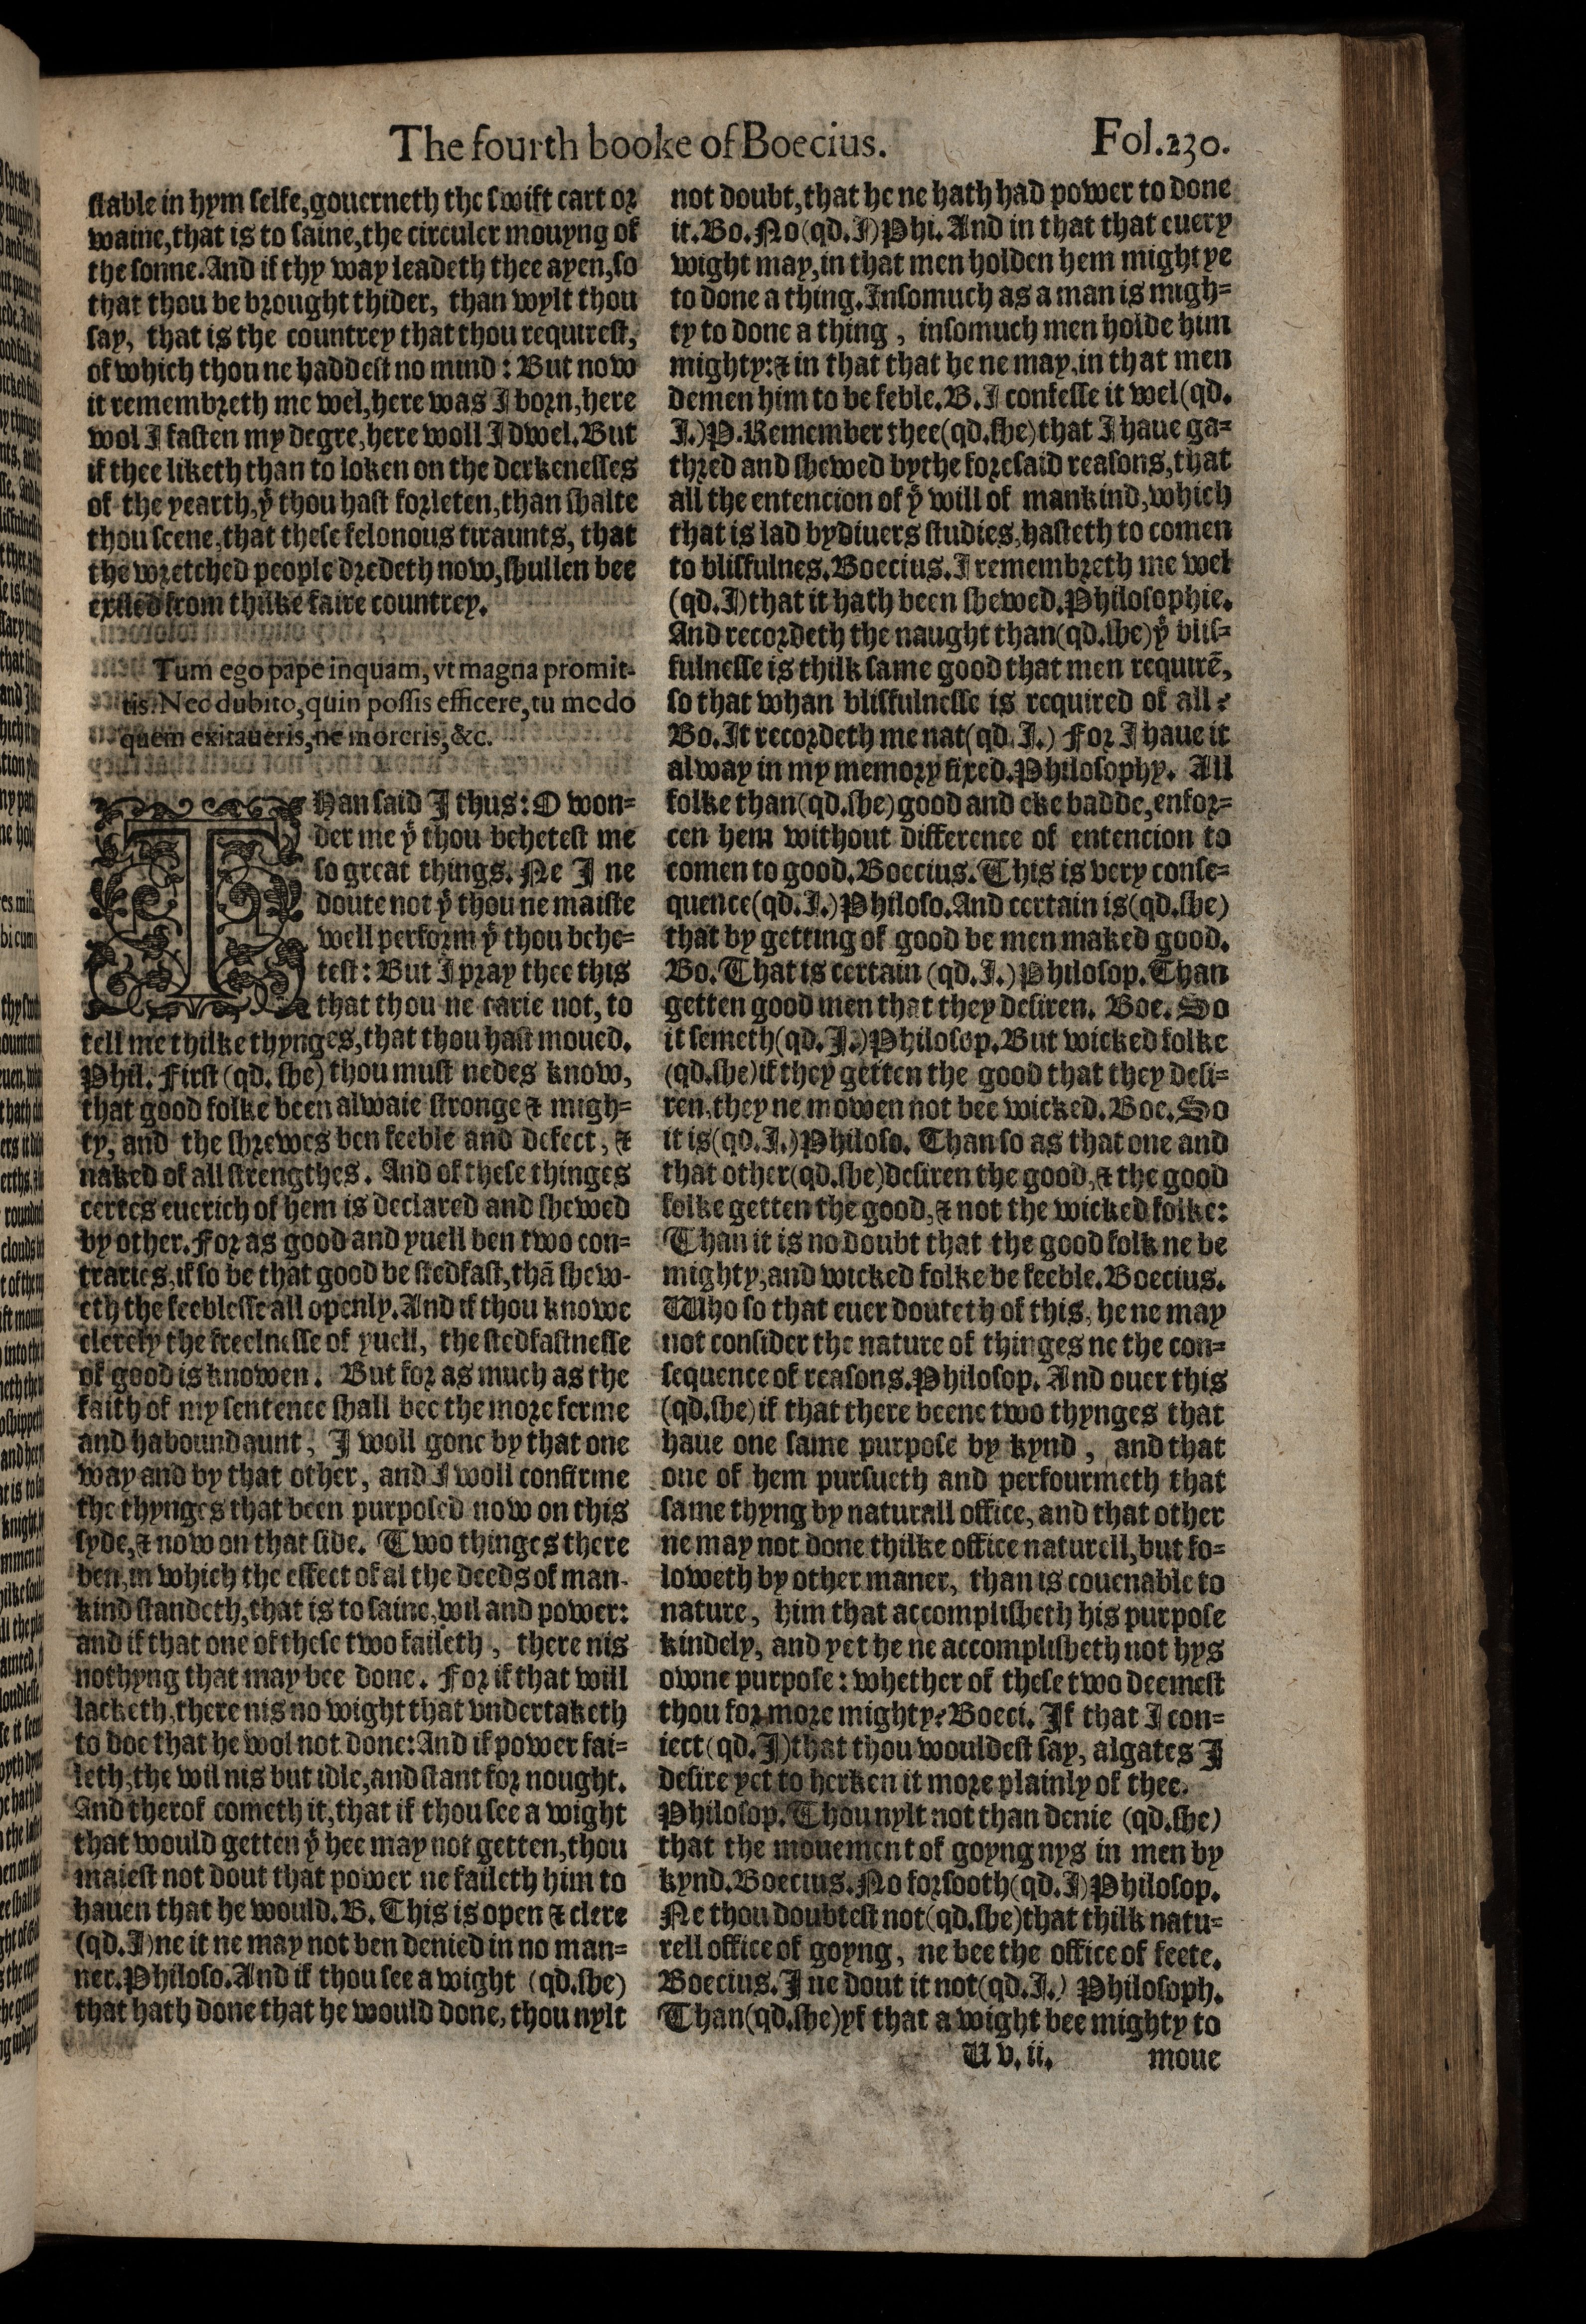 The fourth booke of Boecius.
Fol.230.
stable in hym selfe,gouerneth the swift cart or
waine,that is to saine,the circuler mouyng of
the sonne.And if thy way leadeth thee ayen,so
that thou be brought thider, than wylt thou
say, that is the countrey that thou requirest,
of which thou ne haddest no mind: But now
it remembreth me wel,here was I born,here
wol I fasten my degre,here woll I dwel.But
if thee liketh than to loken on the derkenesses
of the yearth,yͭ thou hast forleten,than shalte
thou seene,that these felonous tiraunts, that
the wretched people dredeth now,shullen bee
exiled from thilke faire countrey.
Tum ego pape inquam, vt magna promit-
tis. Nec dubito,quin possis efficere,tu modo
quem exitaueris,ne moreris,&c.
THan said I thus: O won=
der me yͭ thou behetest me
so great things. Ne I ne
doute not yͭ thou ne maiste
well perform yͭ thou behe=
test: But I pray thee this
that thou ne tarie not, to
tell me thilke thynges,that thou hast moued.
Phil. First (qd. she) thou must nedes know,
that good folke been alwaie stronge & migh=
ty, and the shrewes ben feeble and defect, &
naked of all strengthes. And of these thinges
certes euerich of hem is declared and shewed
by other. For as good and yuell ben two con=
traries,if so be that good be stedfast,thā shew-
eth the feeblesse all openly.And if thou knowe
clerely the freelnesse of yuell, the stedfastnesse
of good is knowen. But for as much as the
faith of my sentence shall bee the more ferme
and haboundaunt, I woll gone by that one
way and by that other, and I woll confirme
the thynges that been purposed now on this
syde,& now on that side. Two thinges there
ben,in which the effect of al the deeds of man-
kind standeth,that is to saine,wil and power:
and if that one of these two faileth, there nis
nothyng that may bee done. For if that will
lacketh,there nis no wight that vndertaketh
to doe that he wol not done:And if power fai=
leth,the wil nis but idle,and stant for nought.
And therof cometh it,that if thou see a wight
that would getten yͭ hee may not getten,thou
maiest not dout that power ne faileth him to
hauen that he would. B. This is open & clere
(qd.I)ne it ne may not ben denied in no man=
ner.Philoso.And if thou see a wight (qd.she)
that hath done that he would done, thou nylt
not doubt,that he ne hath had power to done
it. Bo. No (qd. I) Phi. And in that that euery
wight may,in that men holden hem mightye
to done a thing. Insomuch as a man is migh=
ty to done a thing, insomuch men holde him
mighty:& in that that he ne may,in that men
demen him to be feble. B. I confesse it wel(qd.
I.)P.Remember thee(qd.she)that I haue ga=
thred and shewed by the foresaid reasons,that
all the entencion of yͤ will of mankind,which
that is lad by diuers studies,hasteth to comen
to blisfulnes. Boecius. I remembreth me wel
(qd.I)that it hath been shewed.Philosophie.
And recordeth the naught than(qd.she)yͭ blis=
fulnesse is thilk same good that men requirē,
so that whan blisfulnesse is required of all?
Bo. It recordeth me nat(qd. I.) For I haue it
alway in my memory fixed.Philosophy. All
folke than(qd.she)good and eke badde,enfor=
cen hem without difference of entencion to
comen to good. Boecius. This is very conse=
quence(qd.I.)Philoso.And certain is(qd.she)
that by getting of good be men maked good.
Bo. That is certain (qd. I.)Philosop. Than
getten good men that they desiren. Boe. So
it semeth(qd.I.)Philosop.But wicked folke
(qd.she)if they getten the good that they desi=
ren,they ne mowen not bee wicked. Boe. So
it is(qd.I.)Philoso. Than so as that one and
that other(qd.she)desiren the good,& the good
folke getten the good,& not the wicked folke:
Than it is no doubt that the good folk ne be
mighty,and wicked folke be feeble. Boecius.
Who so that euer douteth of this, he ne may
not consider the nature of thinges ne the con=
sequence of reasons.Philosop. And ouer this
(qd.she)if that there beene two thynges that
haue one same purpose by kynd, and that
one of hem pursueth and perfourmeth that
same thyng by naturall office, and that other
ne may not done thilke office naturell,but fo=
loweth by other maner, than is couenable to
nature, him that accomplisheth his purpose
kindely, and yet he ne accomplisheth not hys
owne purpose: whether of these two deemest
thou for more mighty? Boeci. If that I con=
iect(qd.I)that thou wouldest say, algates I
desire yet to herken it more plainly of thee.
Philosop. Thou nylt not than denie (qd.she)
that the mouement of goyng nys in men by
kynd.Boecius.No forsooth(qd.I)Philosop.
Ne thou doubtest not(qd.she)that thilk natu=
rell office of goyng, ne bee the office of feete.
Boecius. I ne dout it not(qd.I.) Philosoph.
Than(qd.she)yf that a wight bee mighty to
Uv.ii.
moue